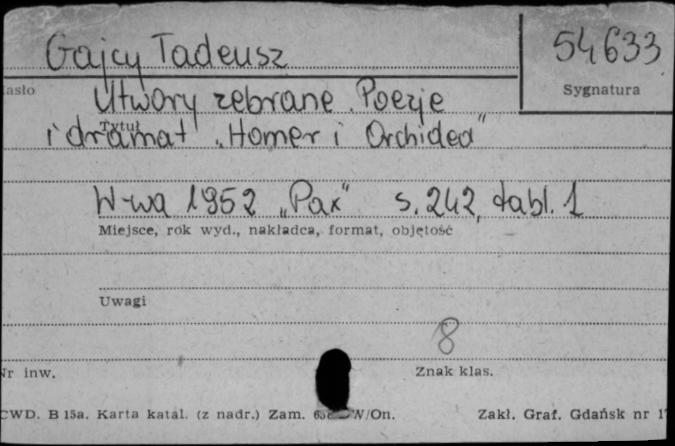 Gajcy Tadeusz
54633
Sygnatura
Utwory zebrane. Poezje
Tytuł
i dramat „Homer i Orchidea"
W-wa 1952 „Pax" s. 242, tabl. 1
Miejsce, rok wyd., nakładca, format, objętość
Uwagi
8
Nr inw.
Znak klas.
CWD. B 15a. Karta katal. (z nadr.) Zam. W/On.
Zakł. Graf. Gdańsk nr